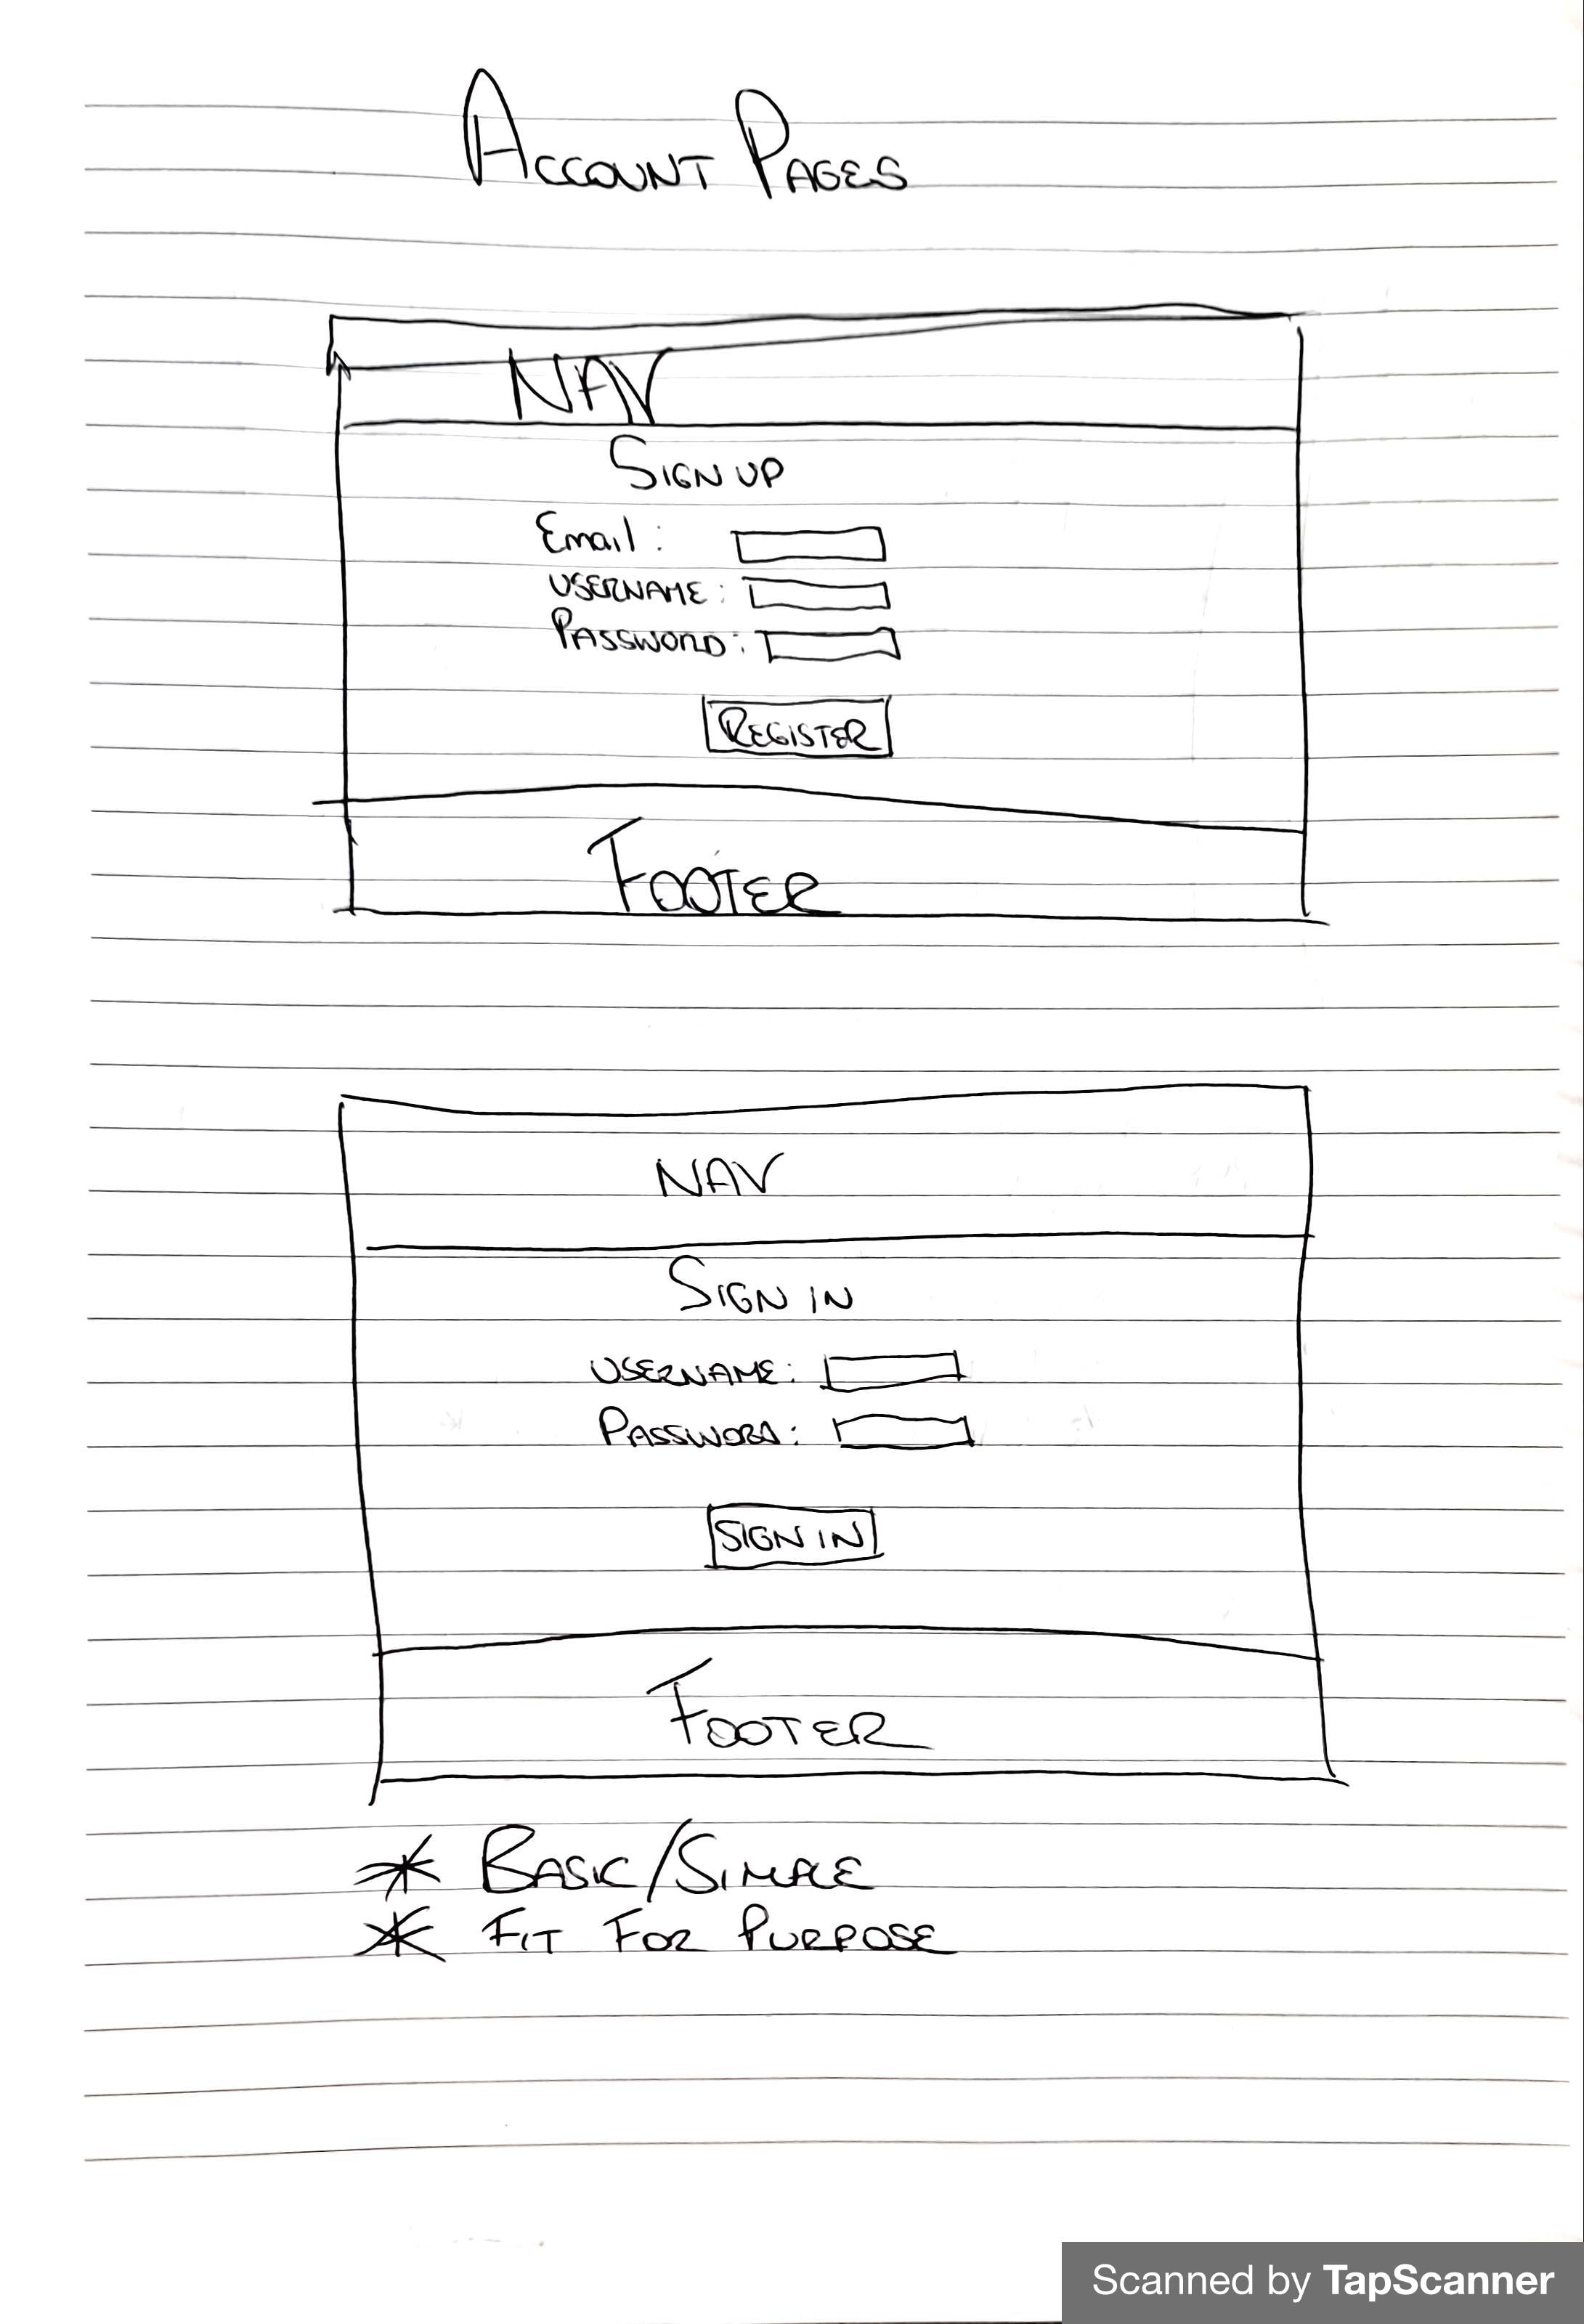 ACCOUNT PAGES
NAV
SIGN UP
Email :
USERNAME :
PASSWORD :
REGISTER
FOOTER
NAV
SIGN IN
USERNAME :
PASSWORD :
SIGN IN
FOOTER
* BASIC/SIMPLE
* FIT FOR PURPOSE
Scanned by TapScanner